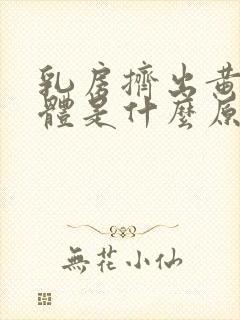 乳房擠出黃
體是什麼原
無花小仙